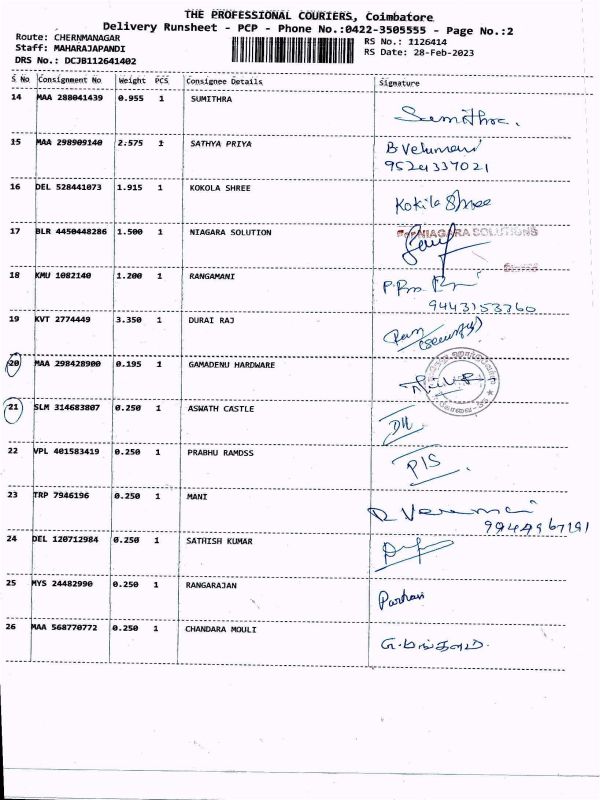 THE PROFESSIONAL COURIERS, Coimbatore
Delivery Runsheet - PCP - Phone No.:0422-3505555 - Page No.:2
Route: CHERNMANAGAR
RS No.: 1126414
Staff: MAHARAJAPANDI
RS Date: 28-Feb-2023
DRS No.: DCJB112641402
S No Consignment No Weight PCS Consignee Details Signature
14 MAA 288041439 0.955 1 SUMITHRA Sumithra.
15 MAA 298909140 2.575 1 SATHYA PRIYA B Velumani
9524337021
16 DEL 528441073 1.915 1 KOKOLA SHREE Kokila Shree
17 BLR 4450448286 1.500 1 NIAGARA SOLUTION For NIAGARA SOLUTIONS
18 KMU 1082140 1.200 1 RANGAMANI
9443153760
19 KVT 2774449 3.350 1 DURAI RAJ
20 MAA 298428900 0.195 1 GAMADENU HARDWARE
21 SLM 314683807 0.250 1 ASWATH CASTLE
22 VPL 401583419 0.250 1 PRABHU RAMDSS PIS
23 TRP 7946196 0.250 1 MANI
24 DEL 120712984 0.250 1 SATHISH KUMAR
25 MYS 24482990 0.250 1 RANGARAJAN
26 MAA 568770772 0.250 1 CHANDARA MOULI